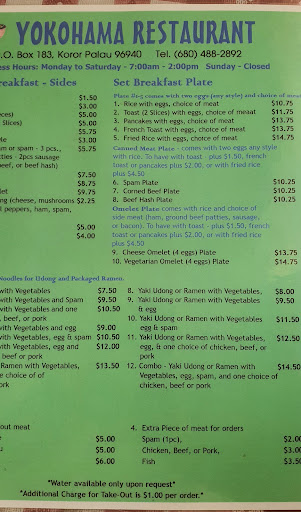 YOKOHAMA RESTAURANT
P.O. Box 183, Koror Palau 96940 Tel. (680) 488-2892
ess Hours: Monday to Saturday - 7:00am - 2:00pm Sunday - Closed
Breakfast - Sides
$1.50
$3.00
$5.00
$5.00
$5.75
$3.00
am - 3 pcs., $5.75
tties - 2pcs sausage
beef, or beef hash)
$7.50
$8.75
elet $9.75
ng (cheese, mushrooms $2.25
l peppers, ham, spam,
$5.00
$4.00
Set Breakfast Plate
Plate #1-5 comes with two eggs (any style) and choice of meat
1. Rice with eggs, choice of meat $10.75
2. Toast (2 Slices) with eggs, choice of meat $11.75
3. Pancakes with eggs, choice of meat $13.75
4. French Toast with eggs, choice of meat $13.75
5. Fried Rice with eggs, choice of meat $14.75
Canned Meat Plate - comes with two eggs any style
with rice. To have with toast - plus $1.50, french
toast or pancakes plus $2.00, or with fried rice,
plus $4.50
6. Spam Plate $10.25
7. Corned Beef Plate $10.25
8. Beef Hash Plate $10.25
Omelet Plate - comes with rice and choice of
side meat (ham, ground beef patties, sausage,
or bacon). To have with toast - plus $1.50, french
toast or pancakes plus $2.00, or with fried rice
plus $4.50
9. Cheese Omelet (4 eggs) Plate $13.75
10. Vegetarian Omelet (4 eggs) Plate $14.75
Noodles for Udong and Packaged Ramen.
with Vegetables $7.50
with Vegetables and Spam $9.50
with Vegetables and one $10.50
, beef, or pork
with Vegetables and egg $9.00
with Vegetables, egg & spam $10.50
with Vegetables, egg and $12.00
beef or pork
Ramen with Vegetables, $13.50
e choice of of
ork
8. Yaki Udong or Ramen with Vegetables, $8.00
9. Yaki Udong or Ramen with Vegetables $9.50
& egg
10. Yaki Udong or Ramen with Vegetables $11.50
egg & spam
11. Yaki Udong or Ramen with Vegetables, $12.50
egg, & one choice of chicken, beef, or
pork
12. Combo - Yaki Udong or Ramen with $14.50
Vegetables, egg, spam, and one choice of
chicken, beef or pork
out meat
$5.00
$5.00
$6.00
4. Extra Piece of meat for orders
Spam (1pc), $2.00
Chicken, Beef, or Pork, $3.00
Fish $3.50
"Water available only upon request"
"Additional Charge for Take-Out is $1.00 per order."